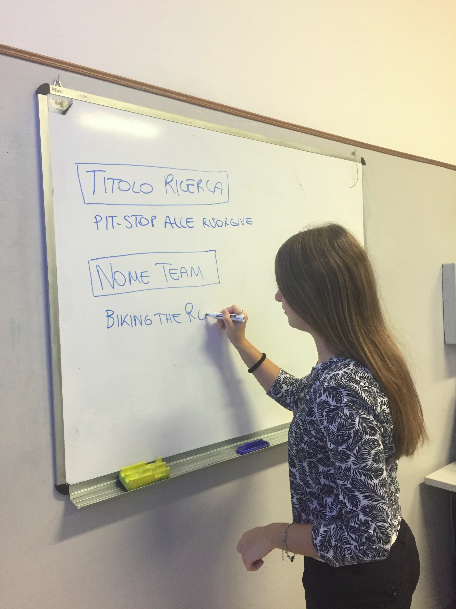 TITOLO RICERCA
PIT-STOP ALLE RISORGIVE
NOME TEAM
BIKING THE